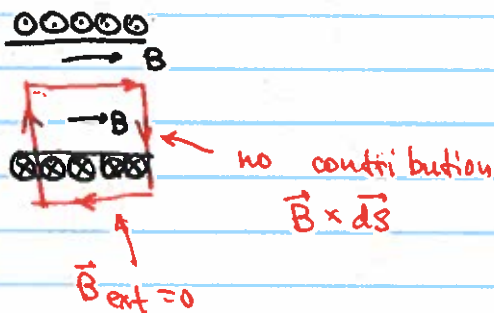 B
B
no contribution
B⃗ × ds⃗
B⃗ ext = 0